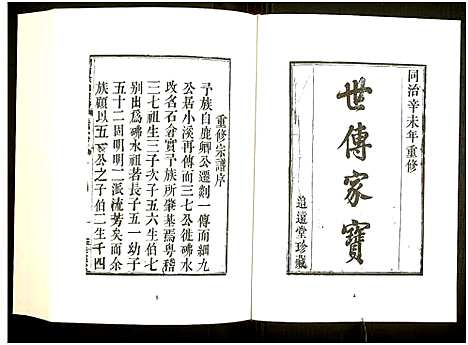 同治辛未年重修
世傳家寶
追遠堂珍藏
重修宗譜序
予族自鹿卿公遷剡一傳而細九
公居小溪再傳而三七公徙磚水
改名石倉實予族所肇基焉粤稽
三七祖生三子次子五六生伯七
別出者為磚水祖若長子五一幼子
五十二固明明二派流芳矣而余
族顧以五一公之子伯二生千四